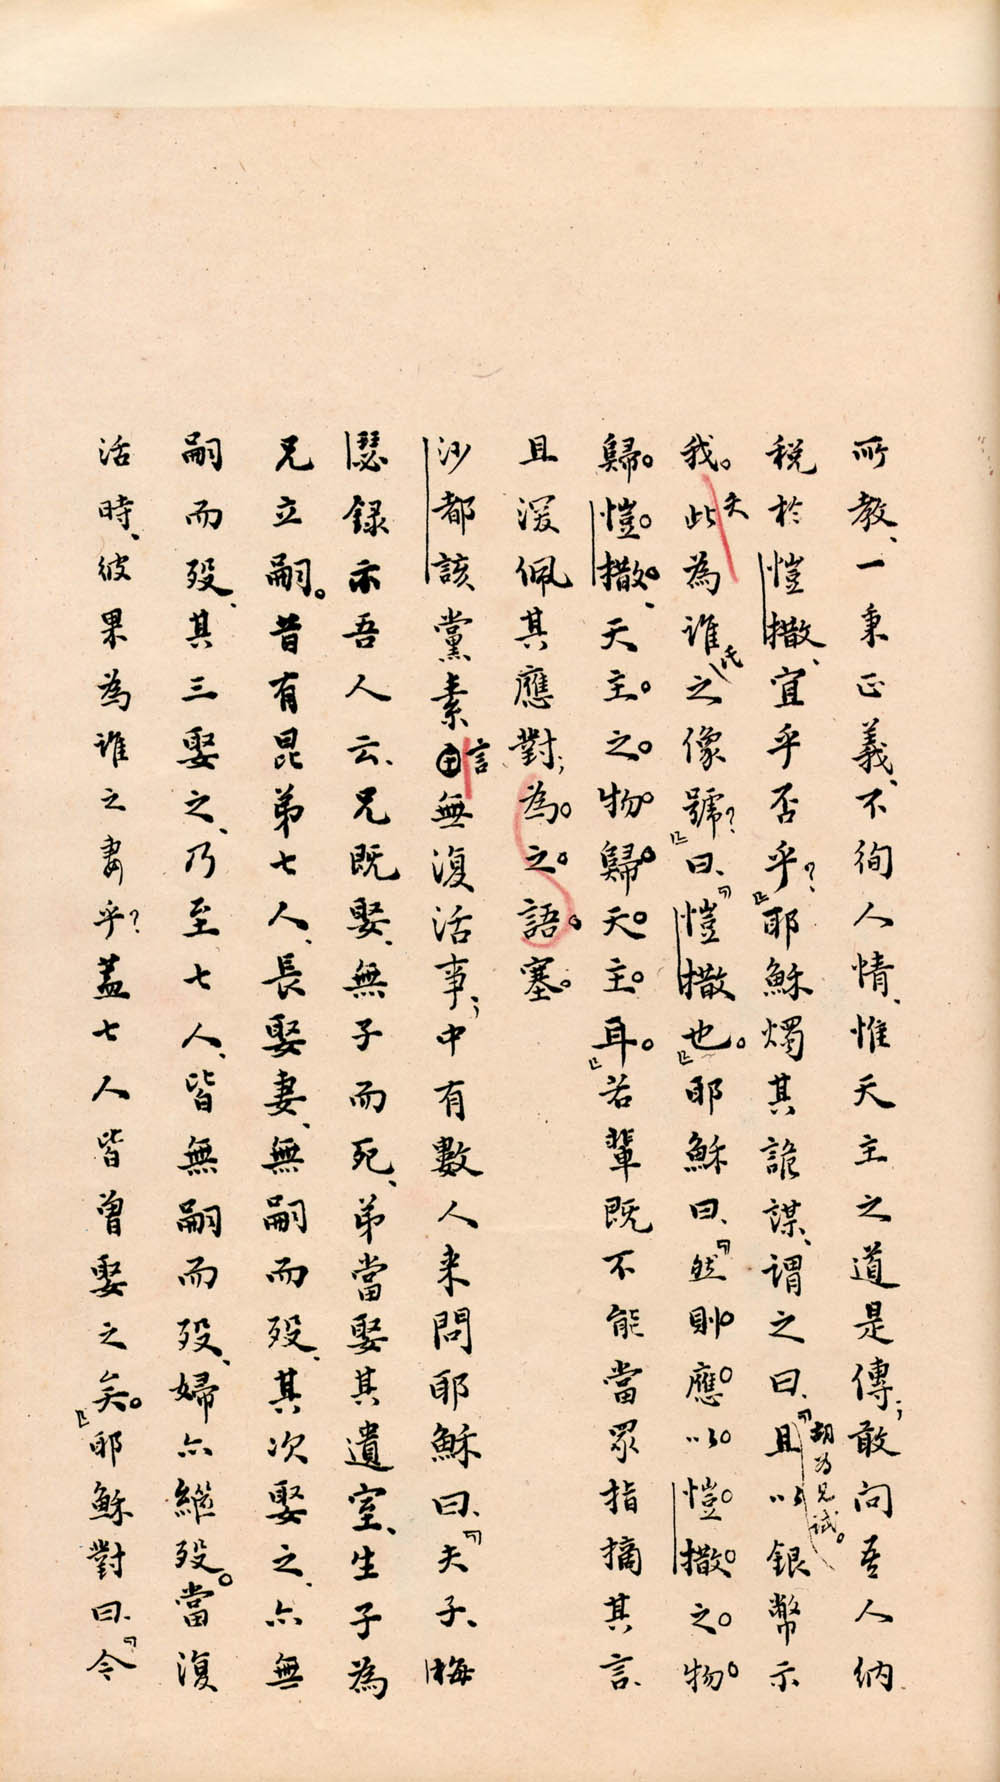 所教、一秉正義、不徇人情、惟天主之道是傳；敢问吾人納
税於愷撒、宜乎否乎？』耶穌燭其詭謀、謂之曰、『胡為見試。且以銀幣示
我。此夫為谁氏之像號？』曰、『愷撒也。』耶穌曰、『然則應以愷撒之物
歸愷撒、天主之物歸天主耳。』若輩既不能當眾指摘其言、
且深佩其應對；為之語塞。
沙都該黨素言無復活事；中有數人来問耶穌曰、『夫子、梅
瑟録示吾人云、兄既娶、無子而死、弟當娶其遺室、生子為
兄立嗣。昔有昆弟七人、長娶妻、無嗣而殁、其次娶之、亦無
嗣而殁、其三娶之、乃至七人、皆無嗣而殁、婦亦繼殁。當復
活時、彼果為谁之妻乎？蓋七人皆曾娶之矣。』耶穌對曰、『今